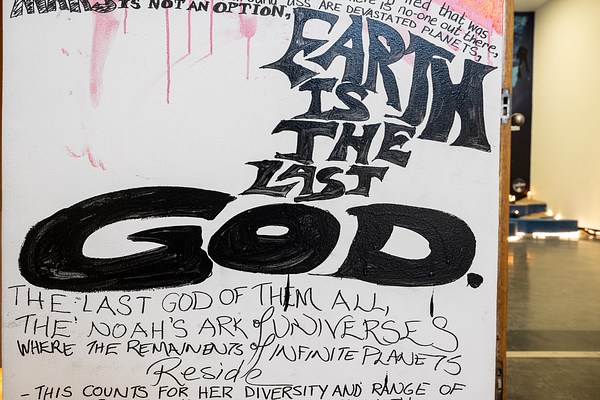 MARS IS NOT AN OPTION,
that was
is no-one out there,
USS ARE DEVASTATED PLANETS,
EARTH
IS
THE
LAST
GOD.
THE LAST GOD OF THEM ALL,
THE NOAH'S ARK of UNIVERSES
WHERE THE REMAINENTS of INFINITE PLANETS
Reside
- THIS COUNTS FOR HER DIVERSITY AND RANGE OF